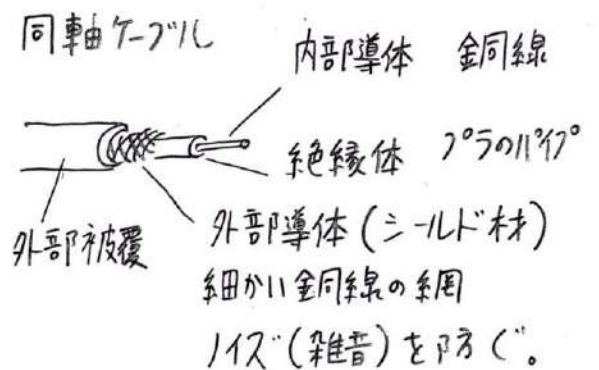 同軸ケーブル
内部導体 銅線
絶縁体 プラのパイプ
外部被覆
外部導体(シールド材)
細かい銅線の網
ノイズ(雑音)を防ぐ。